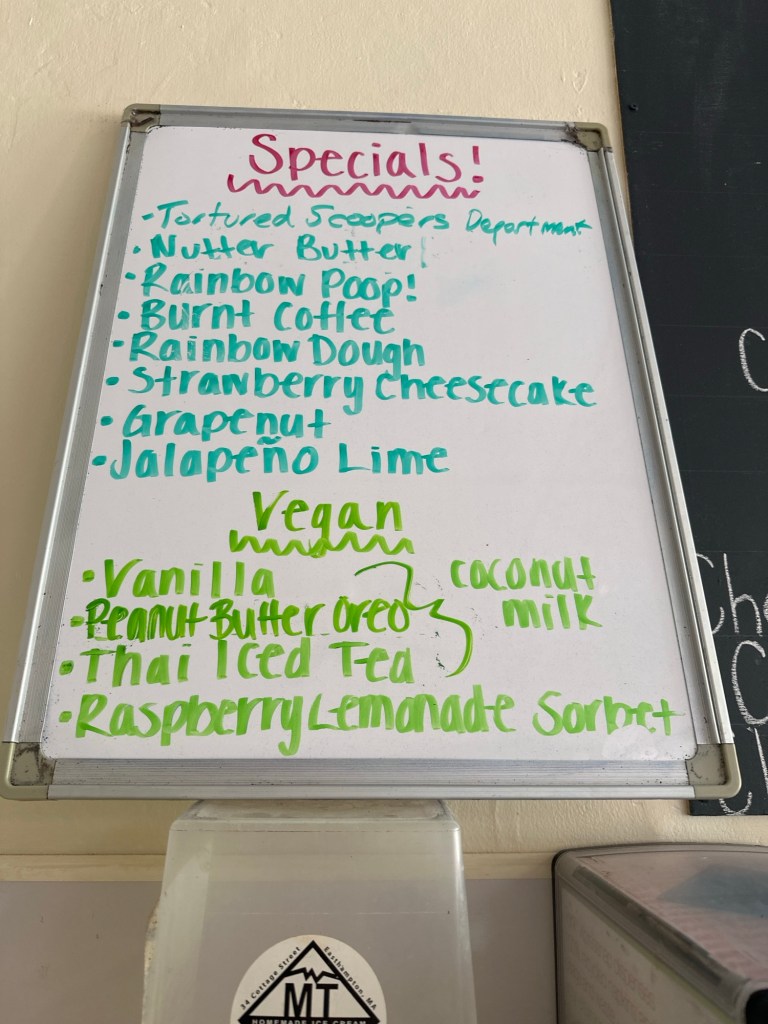 Specials!
·Tortured Scoopers Department
·Nutter Butter
·Rainbow Poop!
·Burnt Coffee
·Rainbow Dough
·Strawberry Cheesecake
·Grapenut
·Jalapeño Lime
Vegan
·Vanilla
·Peanut Butter Oreo
·Thai Iced Tea
coconut
milk
·Raspberry Lemonade Sorbet
24 Cottage Street
Easthampton, MA
MT
HOMEMADE ICE CREAM